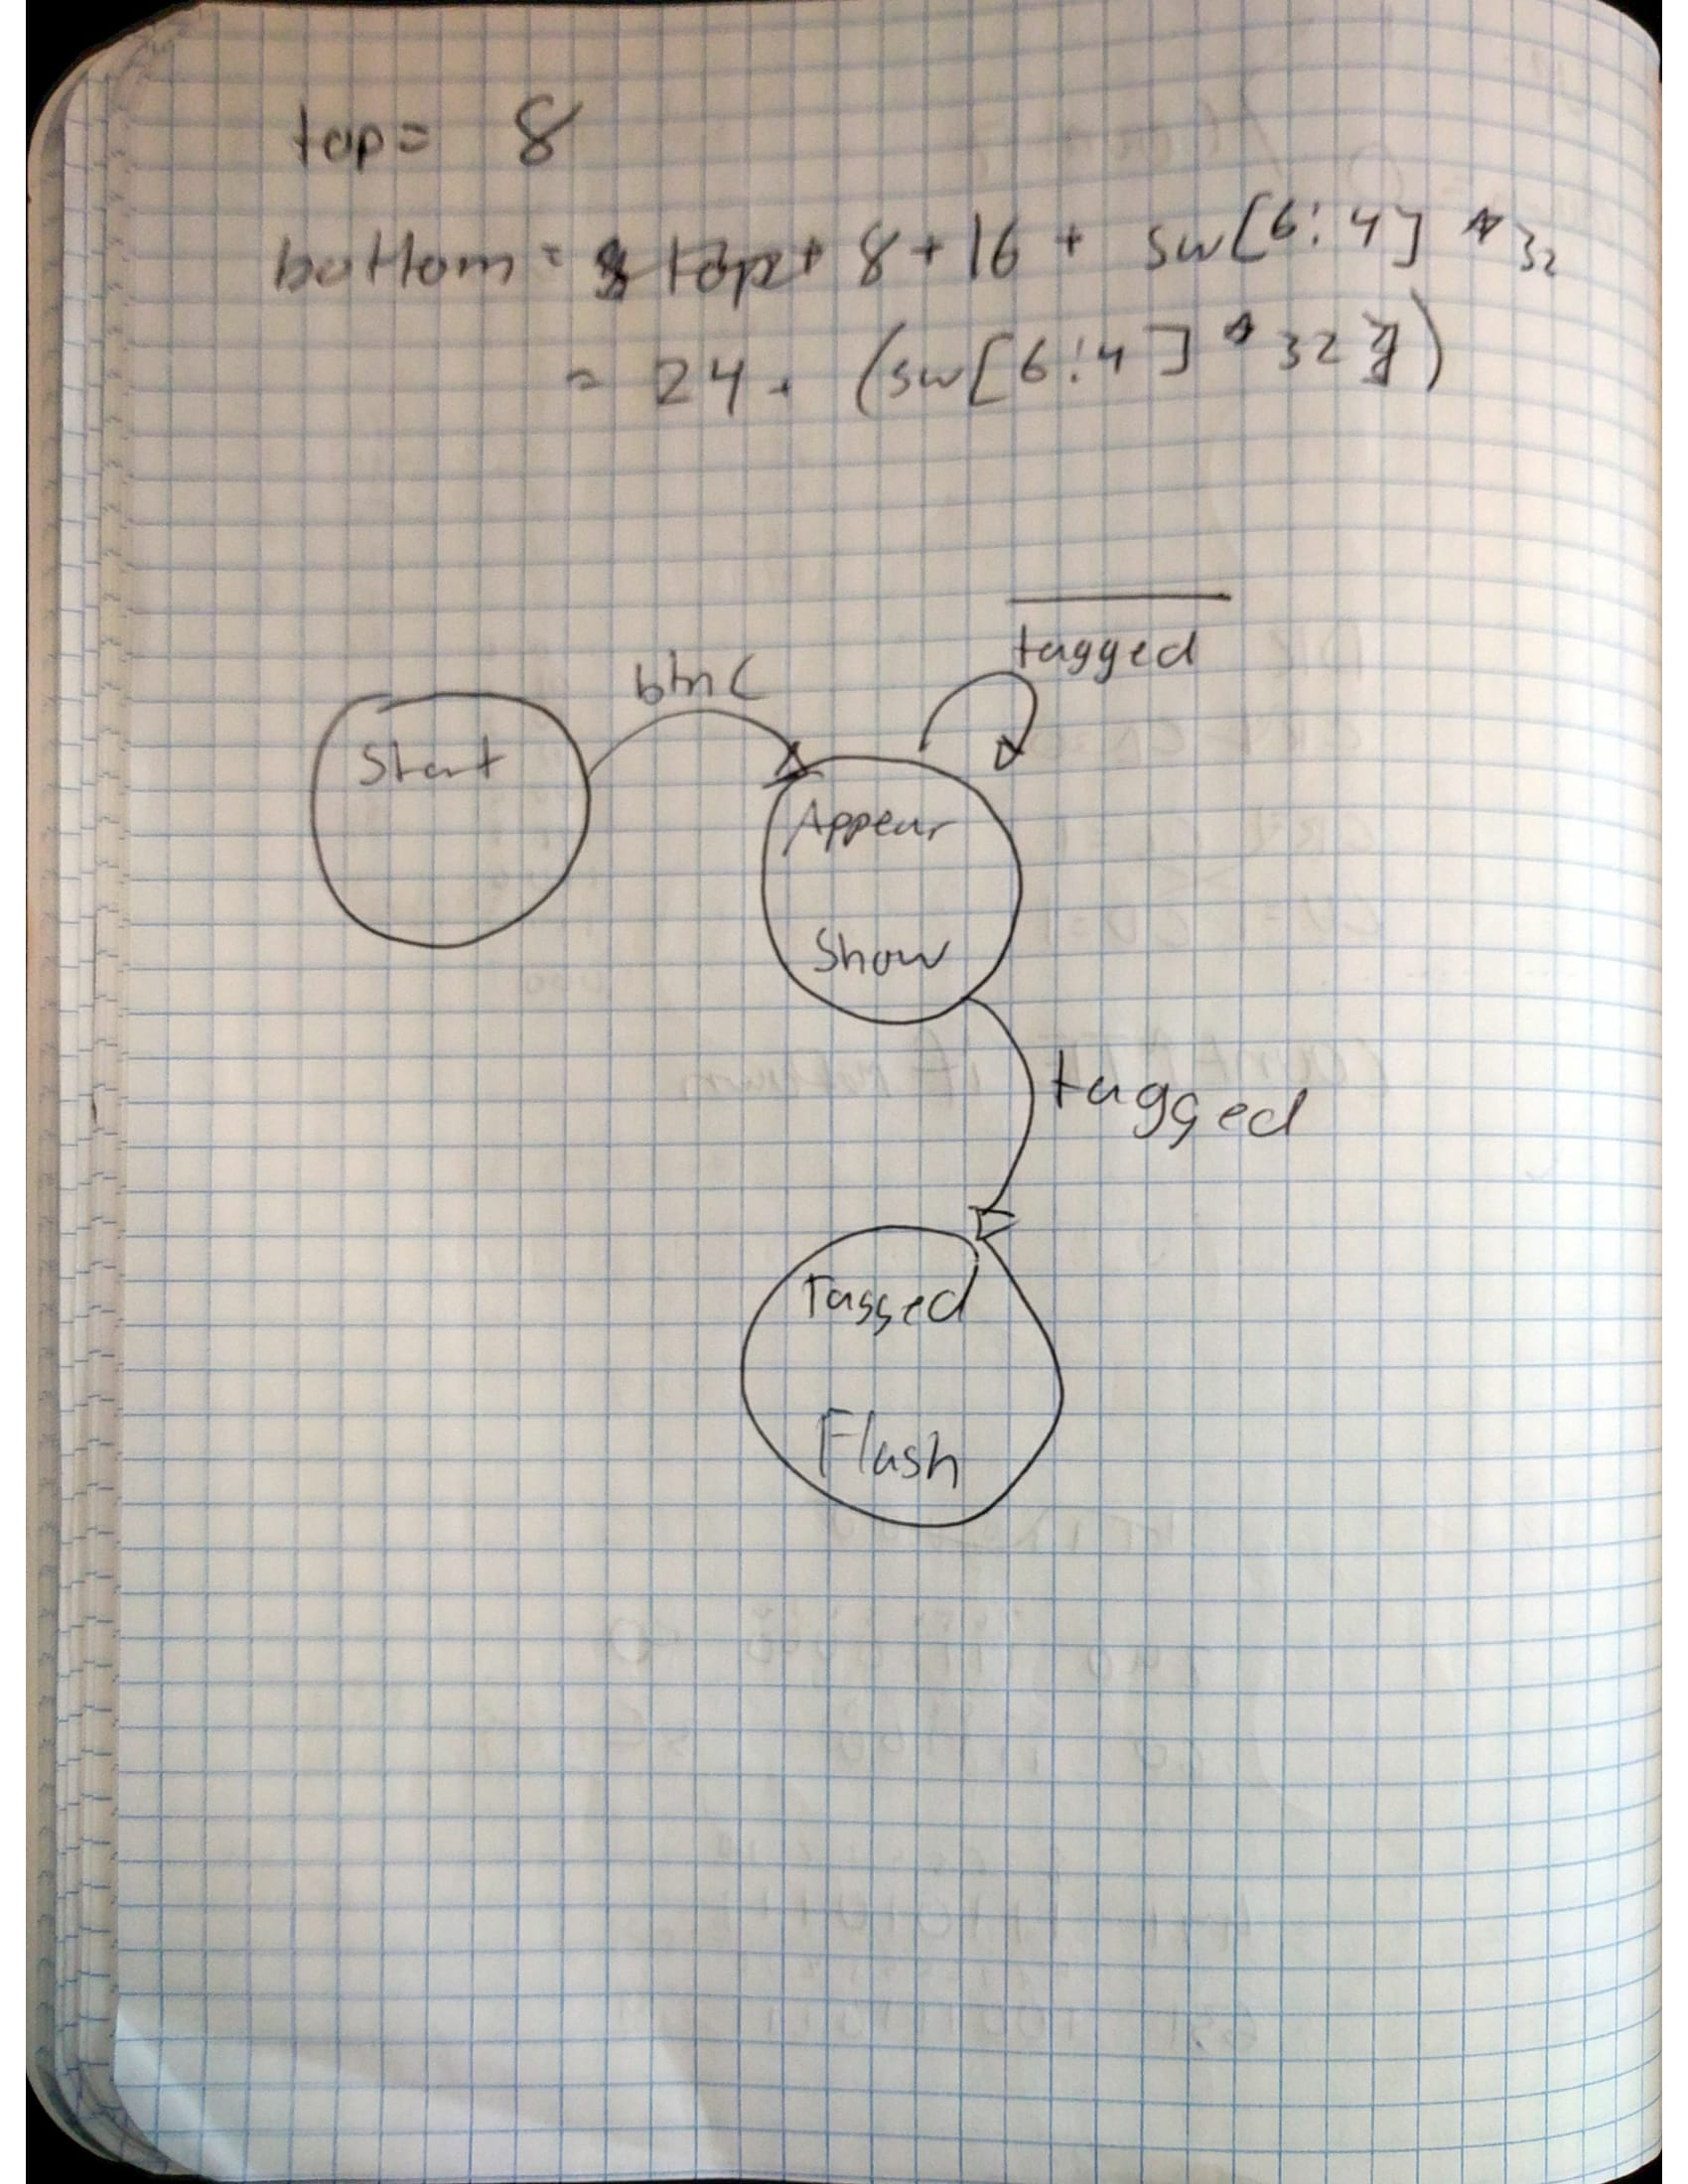 top = 8
bottom = top + 8 + 16 + sw[6:4] * 32
= 24 + (sw[6:4] * 32)
tagged
btnC
Start
Appear
Show
tagged
Tagged
Flash